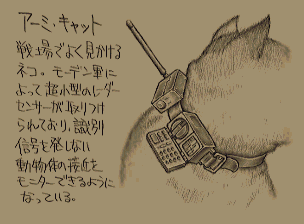 アーミ・キャット
戦場でよく見かける
ネコ。モーデン軍に
よって超小型のレーダー
センサーが取りつけ
られており、識別
信号を発しない
動物体の接近を
モニターできるように
なっている。